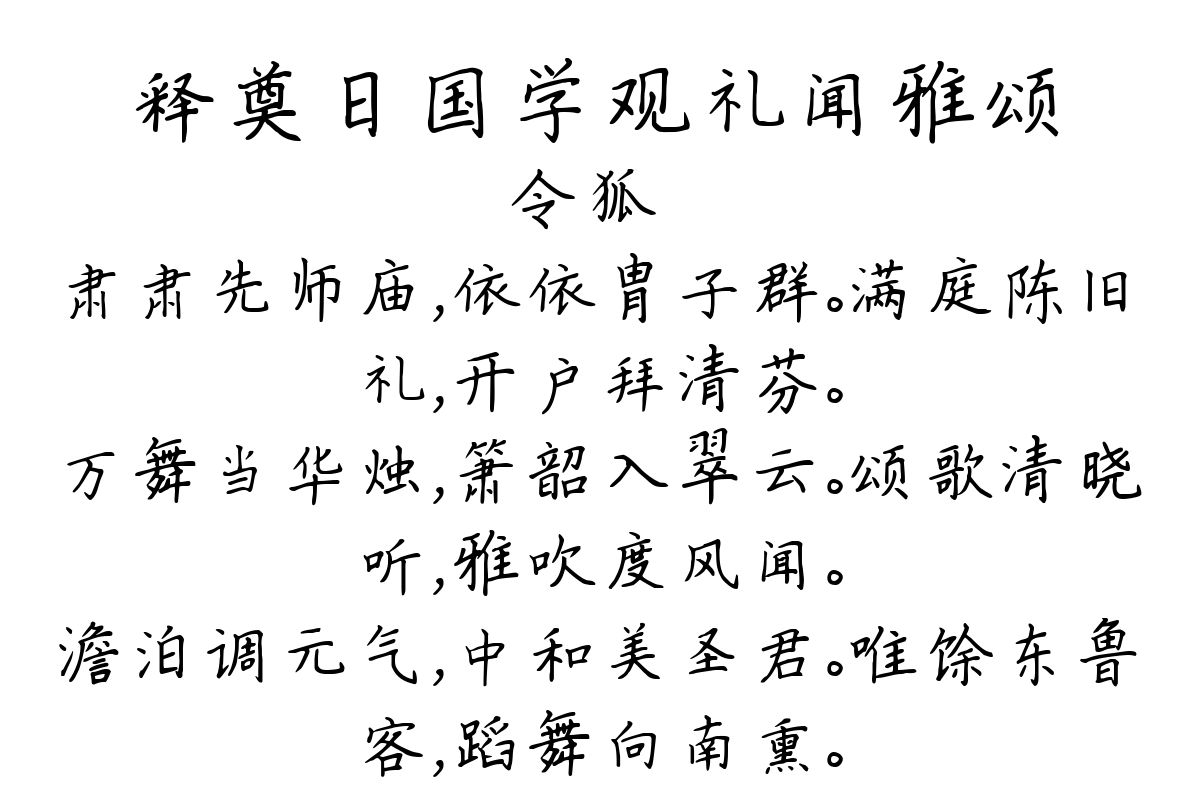 释奠日国学观礼闻雅颂
令狐
肃肃先师庙,依依胄子群。满庭陈旧
礼,开户拜清芬。
万舞当华烛,箫韶入翠云。颂歌清晓
听,雅吹度风闻。
澹泊调元气,中和美圣君。唯馀东鲁
客,蹈舞向南熏。